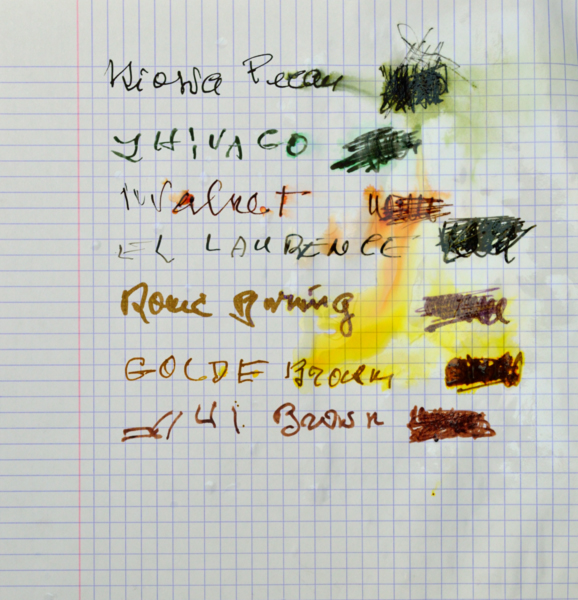 Kiowa Pecan
ZHIVAGO
Walnut
EL LAURENCE
Rome Burning
GOLDE Brown
Brown